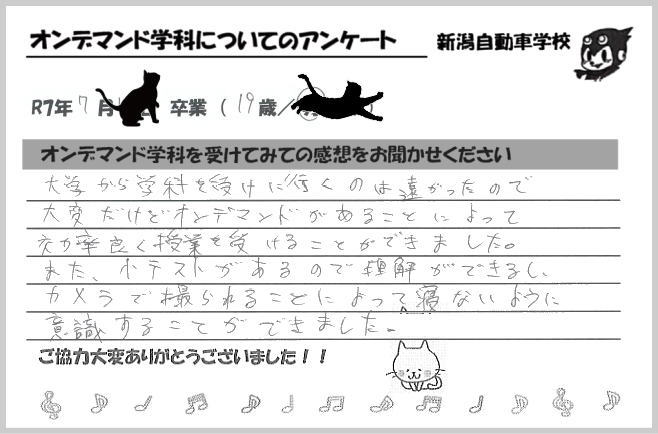 オンデマンド学科についてのアンケート
新潟自動車学校
R7年 7月 卒業 ( 19歳/
オンデマンド学科を受けてみての感想をお聞かせください
大学から学科を受けに行くのは遠かったので
大変だけどオンデマンドがあることによって
効率良く授業を受けることができました。
また、小テストがあるので理解ができるし、
カメラで撮られることによって寝ないように
意識することができました。
ご協力大変ありがとうございました!!